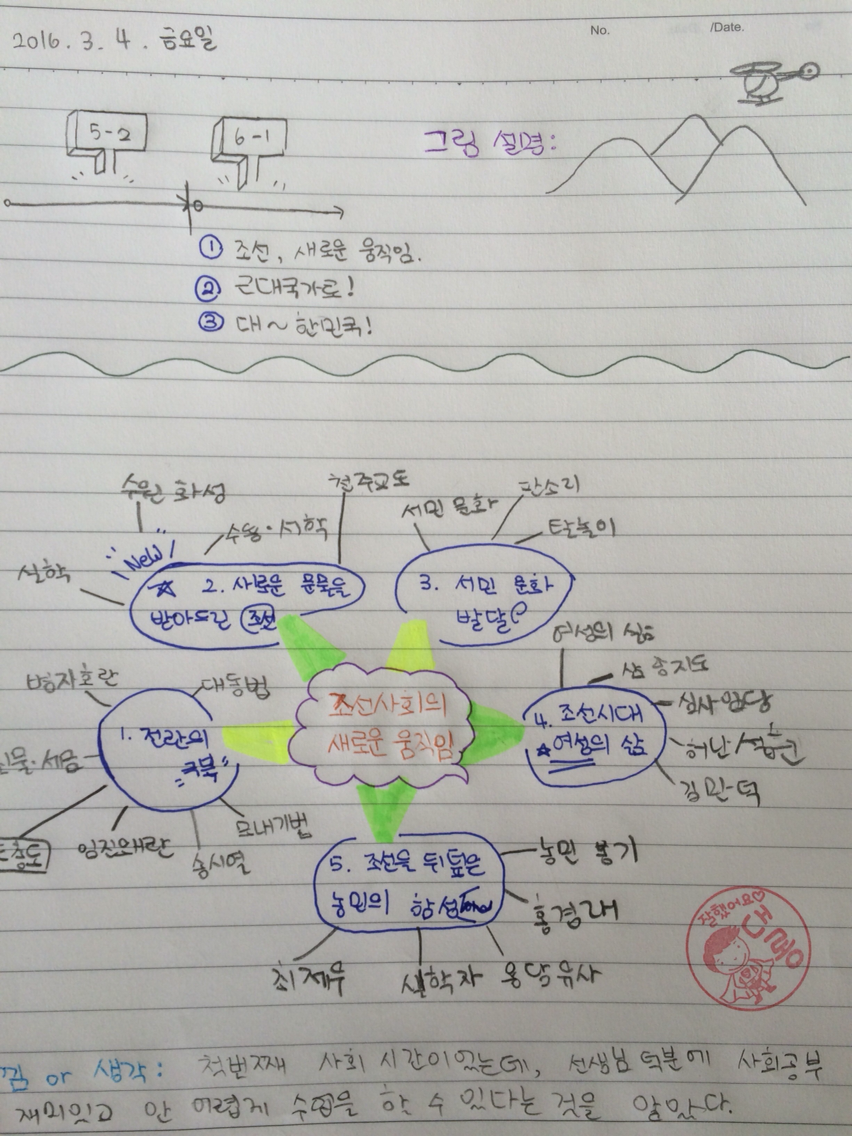 2016. 3. 4. 금요일
No.
/Date.
5-2
6-1
그림 설명:
① 조선, 새로운 움직임.
② 근대국가로!
③ 대~한민국!
수원 화성
천주교도
수용·서학
New
실학
☆ 2. 새로운 문물을
받아드린 조선
서민 문화
판소리
탈놀이
3. 서민 문화
발달
병자호란
대동법
1. 전란의
극복
임진왜란
송시열
모내기법
조선사회의
새로운 움직임
여성의 삶
삼종지도
심사임당
허난설헌
김만덕
4. 조선시대
★여성의 삶
5. 조선을 뒤덮은
농민의 함성
농민 봉기
홍경래
최제우
실학자
잘했어요♡
or 생각: 첫번째 사회 시간이었는데, 선생님 덕분에 사회공부
재미있고 안 어렵게 수업을 할 수 있다는 것을 알았다.